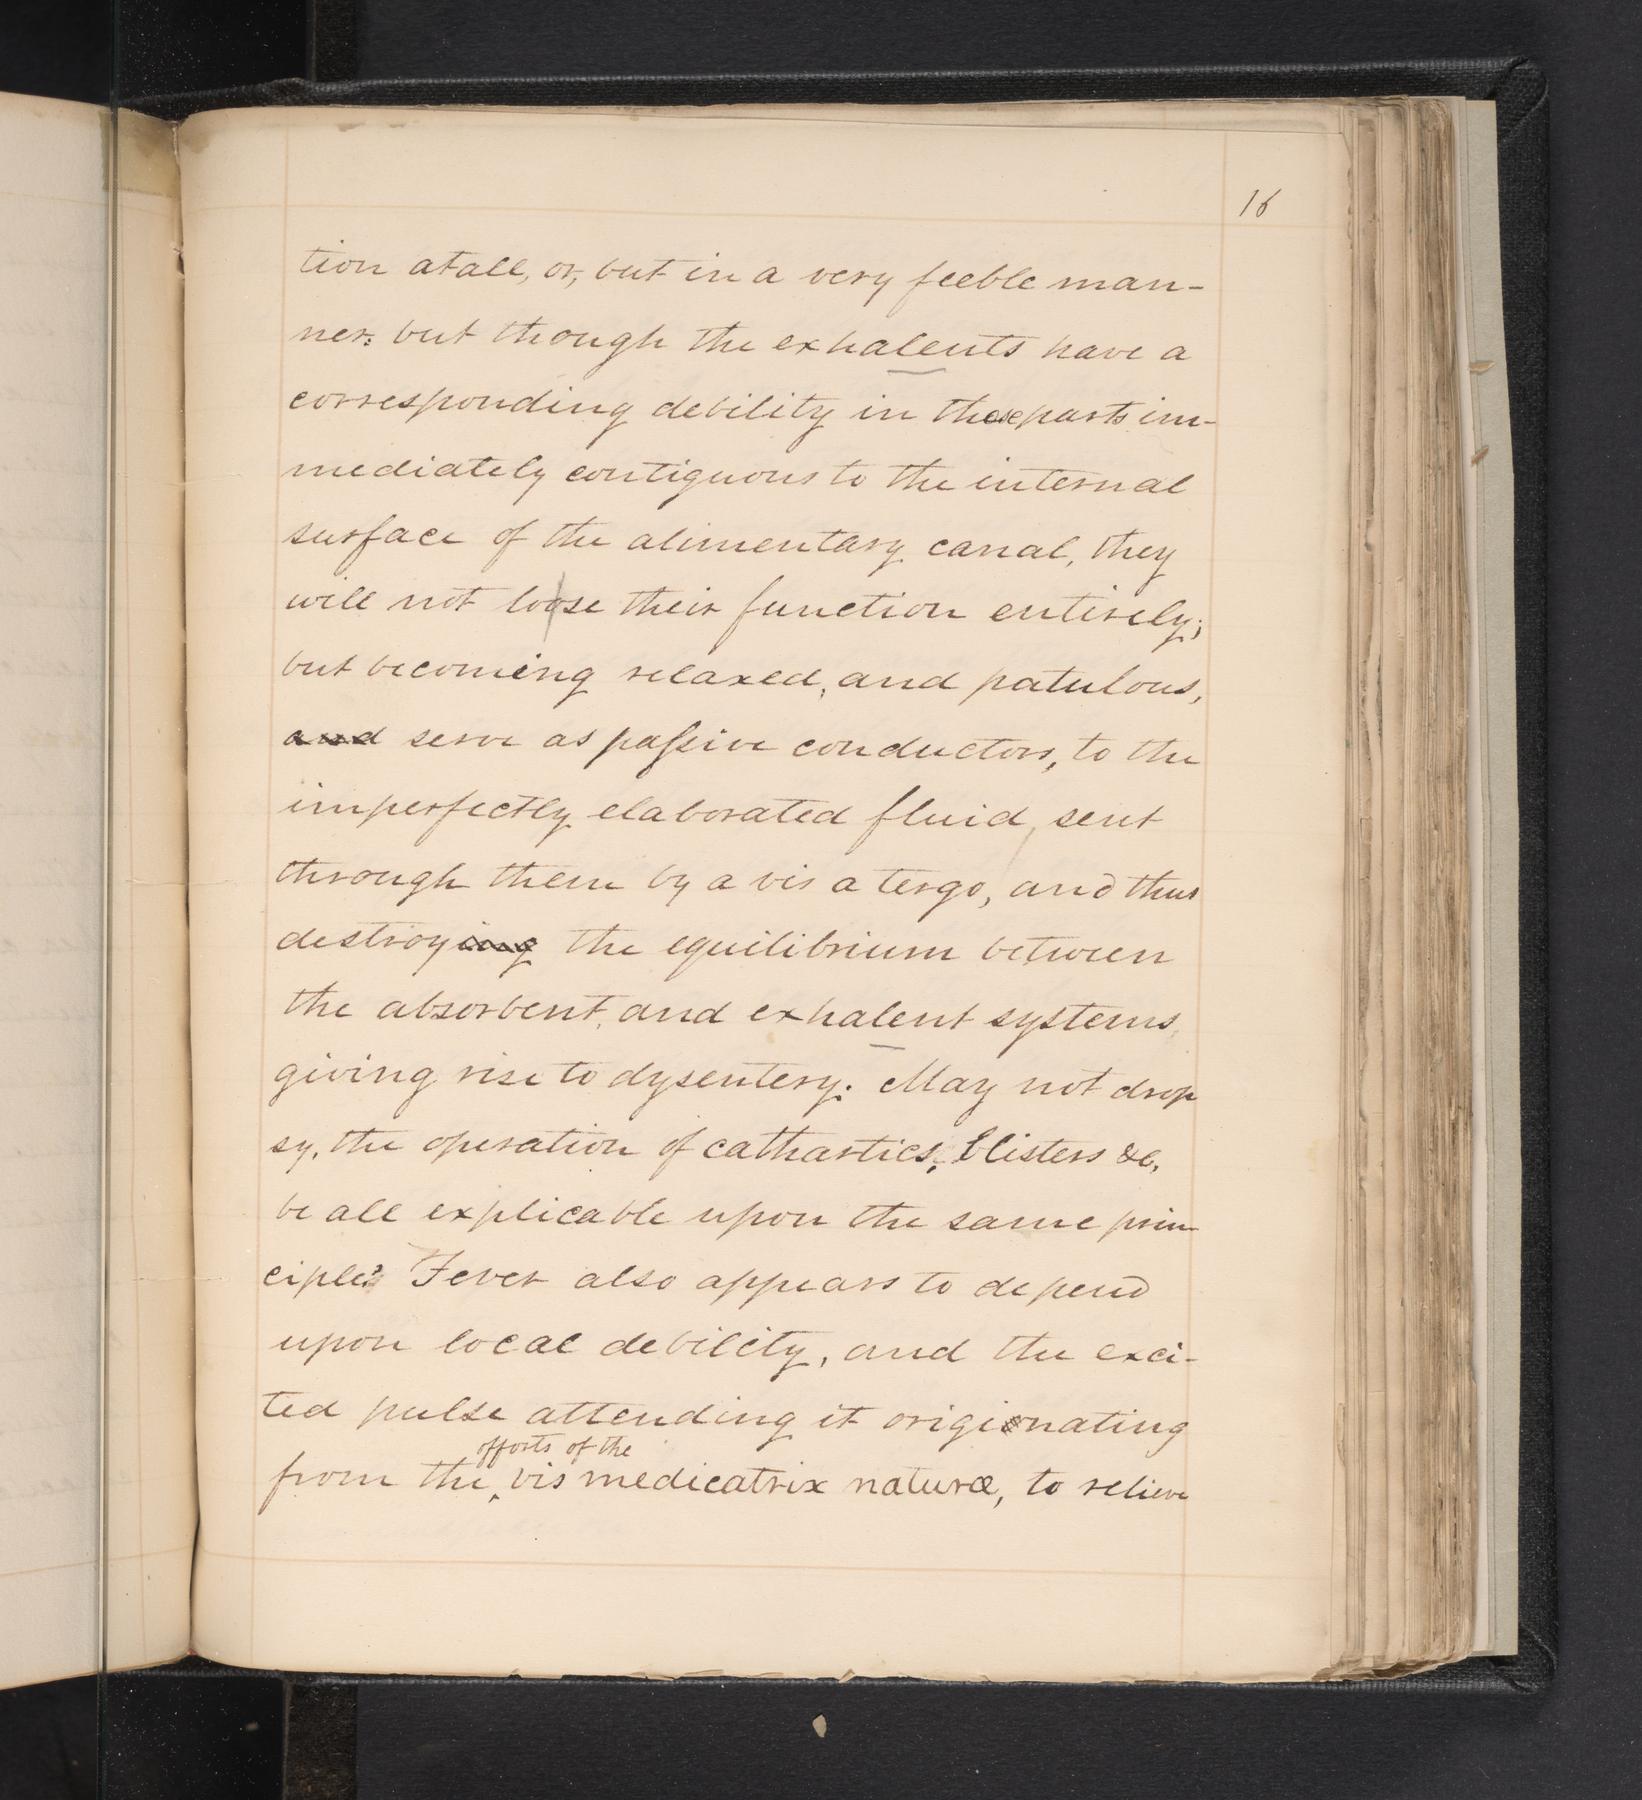 16
tion atall, or, but in a very feeble man-
ner: but though the exhalents have a
corresponding debility in those parts im-
mediately contiguous to the internal
surface of the alimentary canal, they
will not loose their function entirely;
but becoming relaxed, and patulous,
and serve as passive conductors, to the
imperfectly elaborated fluid, sent
through them by a vis a tergo, and thus
destroying the equilibrium between
the absorbent, and exhalent systems,
giving rise to dysentery. May not drop
sy, the operation of cathartics, blisters &c,
be all explicable upon the same prin
ciple? Fever also appears to depend
upon local debility, and the exci-
ted pulse attending it originating
efforts of the
from the vis medicatrix naturæ, to relieve